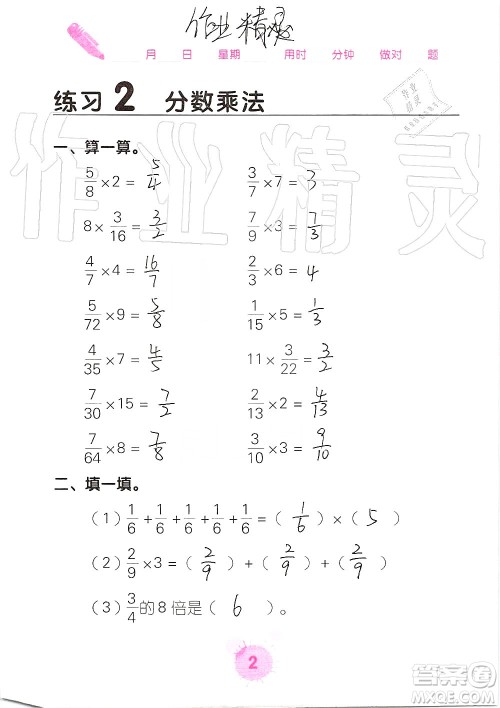 作业精灵
月 日 星期 用时 分钟 做对 题
练习 2 分数乘法
一、算一算。
5/8 ×2= 5/4 3/7 ×7= 3
8× 3/16 = 3/2 7/9 ×3= 7/3
4/7 ×4= 16/7 2/3 ×6= 4
5/72 ×9= 5/8 1/15 ×5= 1/3
4/35 ×7= 4/5 11× 3/22 = 3/2
7/30 ×15= 7/2 2/13 ×2= 4/13
7/64 ×8= 7/8 3/10 ×3= 9/10
二、填一填。
（1）1/6 + 1/6 + 1/6 + 1/6 + 1/6 =（ 1/6 ）×（ 5 ）
（2）2/9 ×3=（ 2/9 ）+（ 2/9 ）+（ 2/9 ）
（3）3/4 的8倍是（ 6 ）。
2
作业精灵
作业精灵
答案圈
MXQE.COM